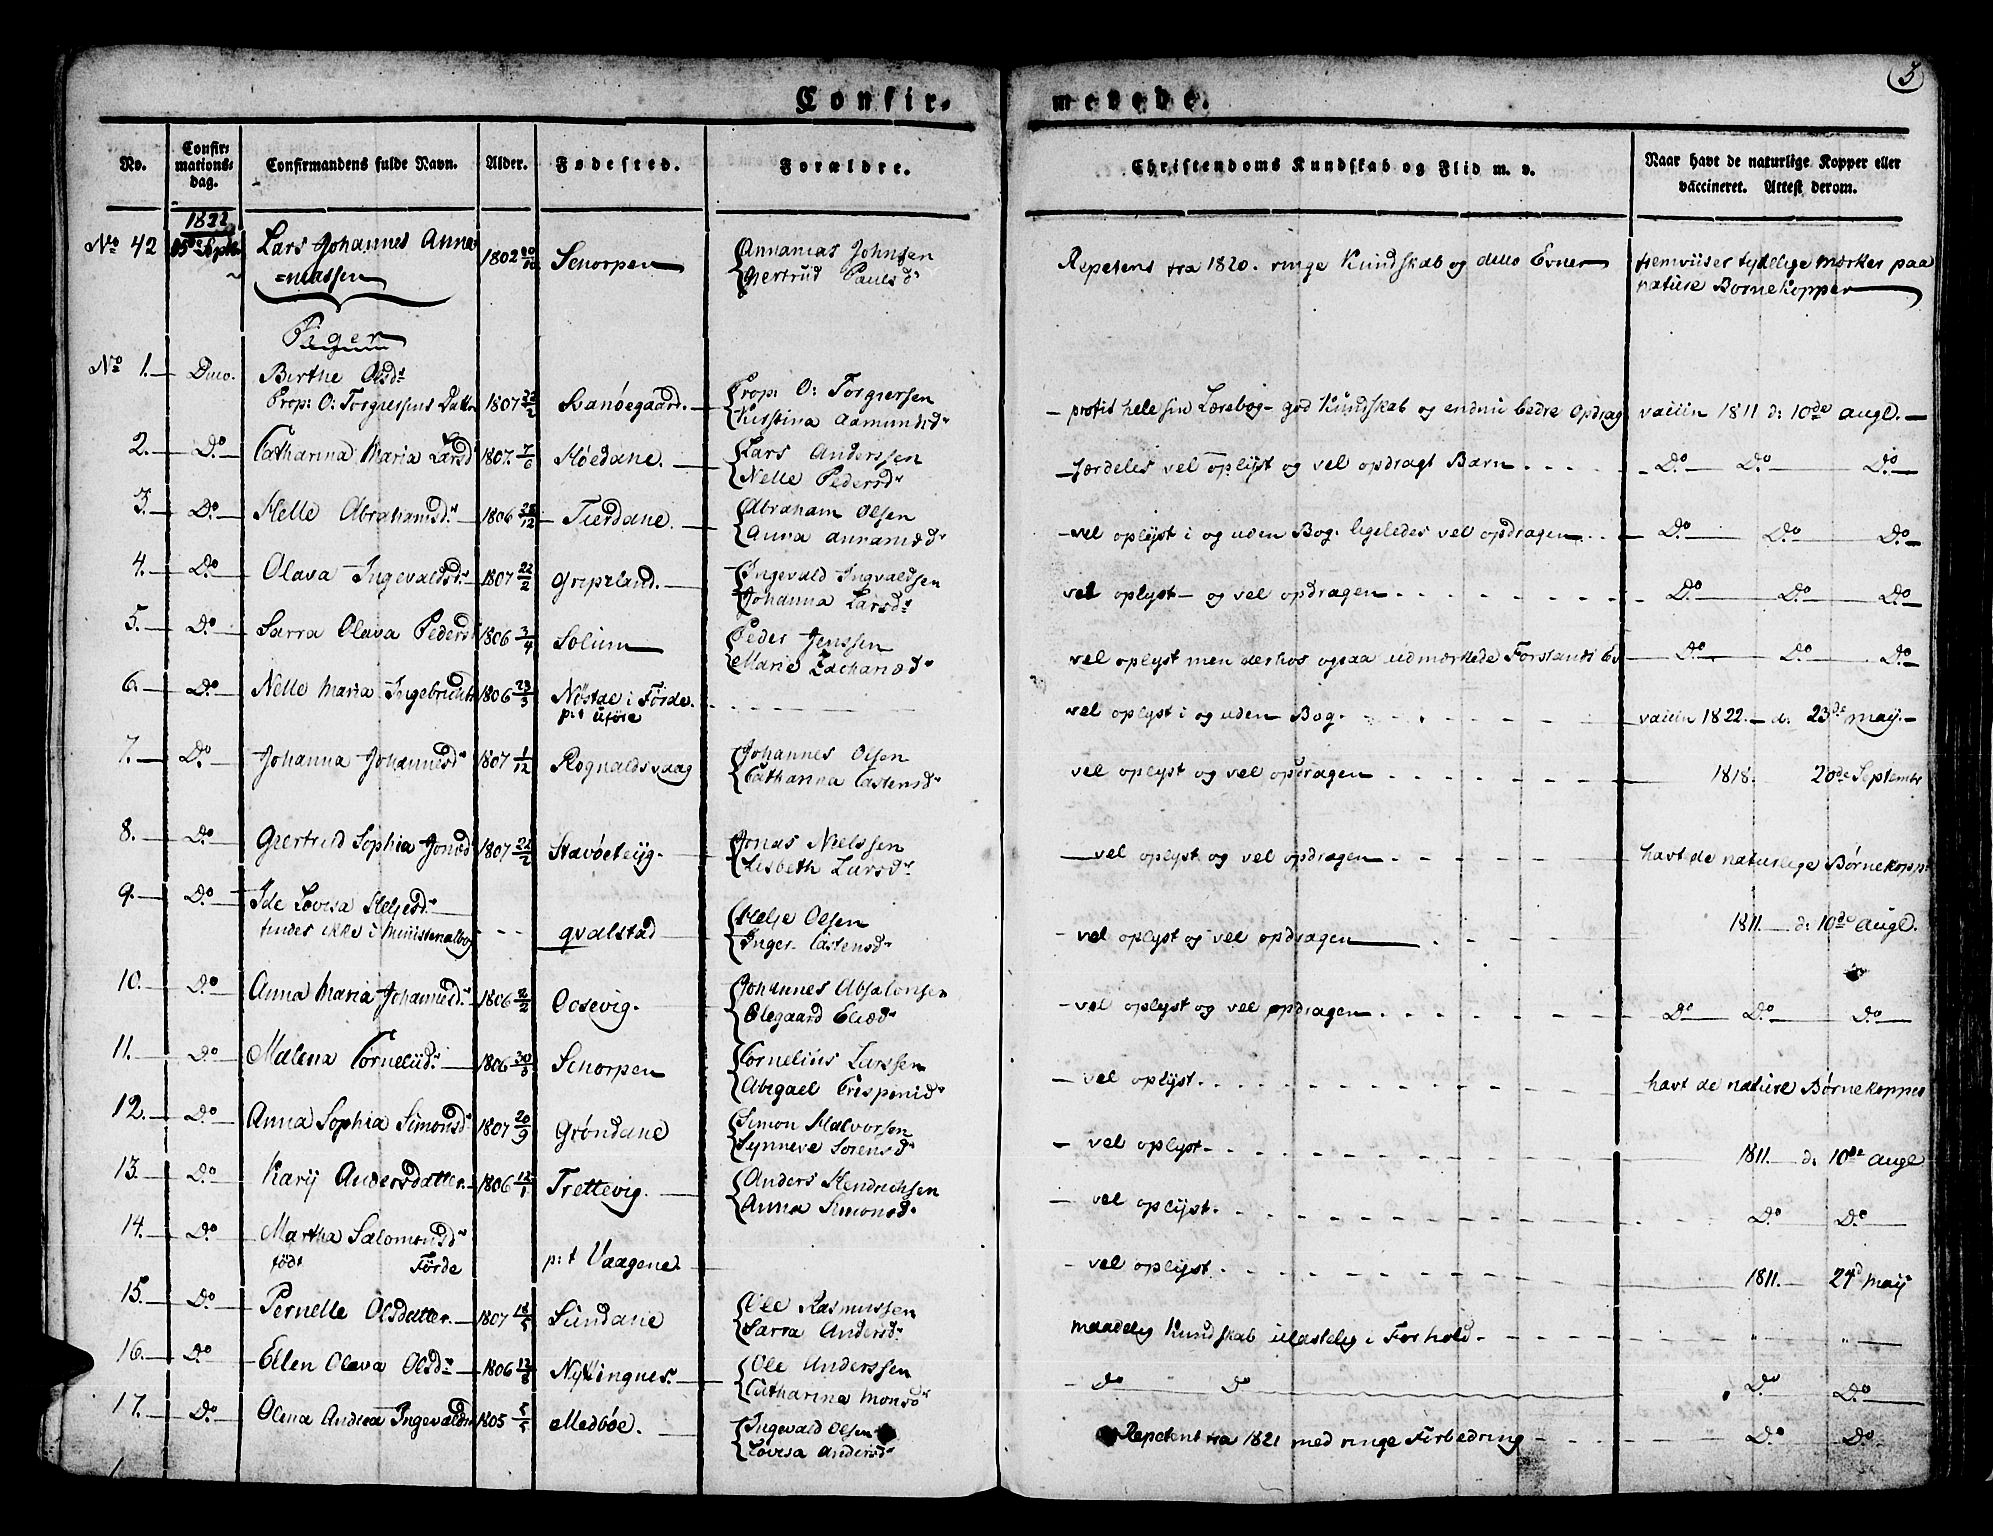 3
Confir-
merede.
No.
Confir-
mations-
dag.
Confirmandens fulde Navn.
Alder.
Fødested.
Forældre.
Christendoms Kundskab og Flid m. v.
Naar havt de naturlige Kopper eller
vaccineret. Attest derom.
1822
No 42 15de Septbr Lars Johannes Anna 1802 Senorpen Annanias Johnsen
=niassen Gertrud Pauls d.
Repetens fra 1820. ringe Kundskab og dito Evner fremviiser tydelige mærker paa
nature Børnekopper
Piger
No 1. Dito. Birthe Olsd.
Prop: O: Torgersens Datter 1807 22/2 Svanøegaard. Prop: O: Torgersen
Kirstina Aamundsd.
- profit hele sin Lærebog - god Kundskab og endnu bedre Opdrag vaccin 1811 d: 10de Augl.
2. Do Catharina Maria Larsd 1807. 7/6 Høedane. Lars Anderssen
Nelle Pedersd.
- særdeles vel oplyst og vel opdragt Barn Do Do Do
3. Do Helle Abrahamsd. 1806 /12 Tierdane. Abraham Olsen
Anna Annanæd.
- vel oplyst i og uden Bog. ligeledes vel opdragen Do Do Do
4. Do Olava Ingevaldsd. 1807 22/2 Grepeland. Ingevald Ingvaldsen
Johanna Larsd.
vel oplyst - og vel opdragen Do Do Do
5. Do Sarra Olava Peders 1806 3/4 Solium Peder Jenssen
Marie Zachariæd.
vel oplyst men derhos ogsaa udmærkede Forstands Ev Do Do Do
6. Do Nelle Maria Ingebrichts 1806 23/3 Nøstdae i Førde.
p: t Uføre
vel oplyst i og uden Bog. vaccin 1822. d: 23de May.
7. Do Johanna Johannesd. 1807 1/12 Rognaldsvaag Johannes Olsen
Catharina Castensd.
vel oplyst og vel opdragen 1818. 20de Septembr
8. Do Giertrud Sophia Jonæd 1807 22/2 Stavøeteijg. Jonas Nielssen
Lisbeth Larsd.
vel oplyst og vel opdragen havt de naturlige Børnekopp
9. Do Ide Lovisa Heljesd.
findes ikke i Ministerialbog Qvalstad Helje Olsen
Inger Castensd.
- vel oplyst og vel opdragen 1811. d: 10de Augl.
10. Do Anna Maria Johannesd. 1806 2/2 Ocsevig. Johannes Absalonsen
Olegaard Eliæd.
- vel oplyst og vel opdragen Do Do Do
11. Do Malena Corneliid. 1806 30/3 Senorpen Cornelius Larssen
Abigael Crispinid.
- vel oplyst. havt de nature Børnekopper
12. Do Anna Sophia Simonsd. 1807 20/9 Grøndane Simon Halvorsen
Synneve Sørensd.
- vel oplyst. 1811. d: 10de Augl
13. Do Karij Andersdatter. 1806 12/1 Trettevig. Anders Hendrichsen
Anna Simonsd.
- vel oplyst. Do Do
14. Do Martha Salomonsd.
født Førde p: t Vaagene.
- vel oplyst. 1811. 24d Maij
15. Do Pernelle Olsdatter. 1807 18/5 Sundane Ole Rasmussen
Sarra Andersd.
maadelig Kundskab ulastelig i Forhold. " "
16. Do Ellen Olava Olsd. 1806 13/8 Nyttingnes. Ole Anderssen
Catharina Monsd.
- do do Do Do
17. Do Olena Andrea Ingevaldsd 1805 5/5 Medbøe. Ingevald Olsen
Lovisa Andersd.
Repetent fra 1821 med ringe Forbedring Do Do